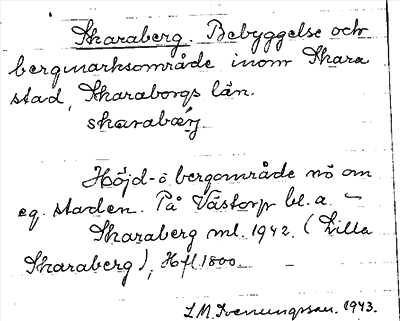 Skaraberg. Bebyggelse och
bergmarksområde inom Skara
stad, Skaraborgs län.
skarabærj
Höjd- o bergområde nö om
eg. staden. På Västorp bl.a. –
Skaraberg ml. 1942. (Lilla
Skaraberg), Hfl 1800. –
I.M. Svenungsson. 1943.